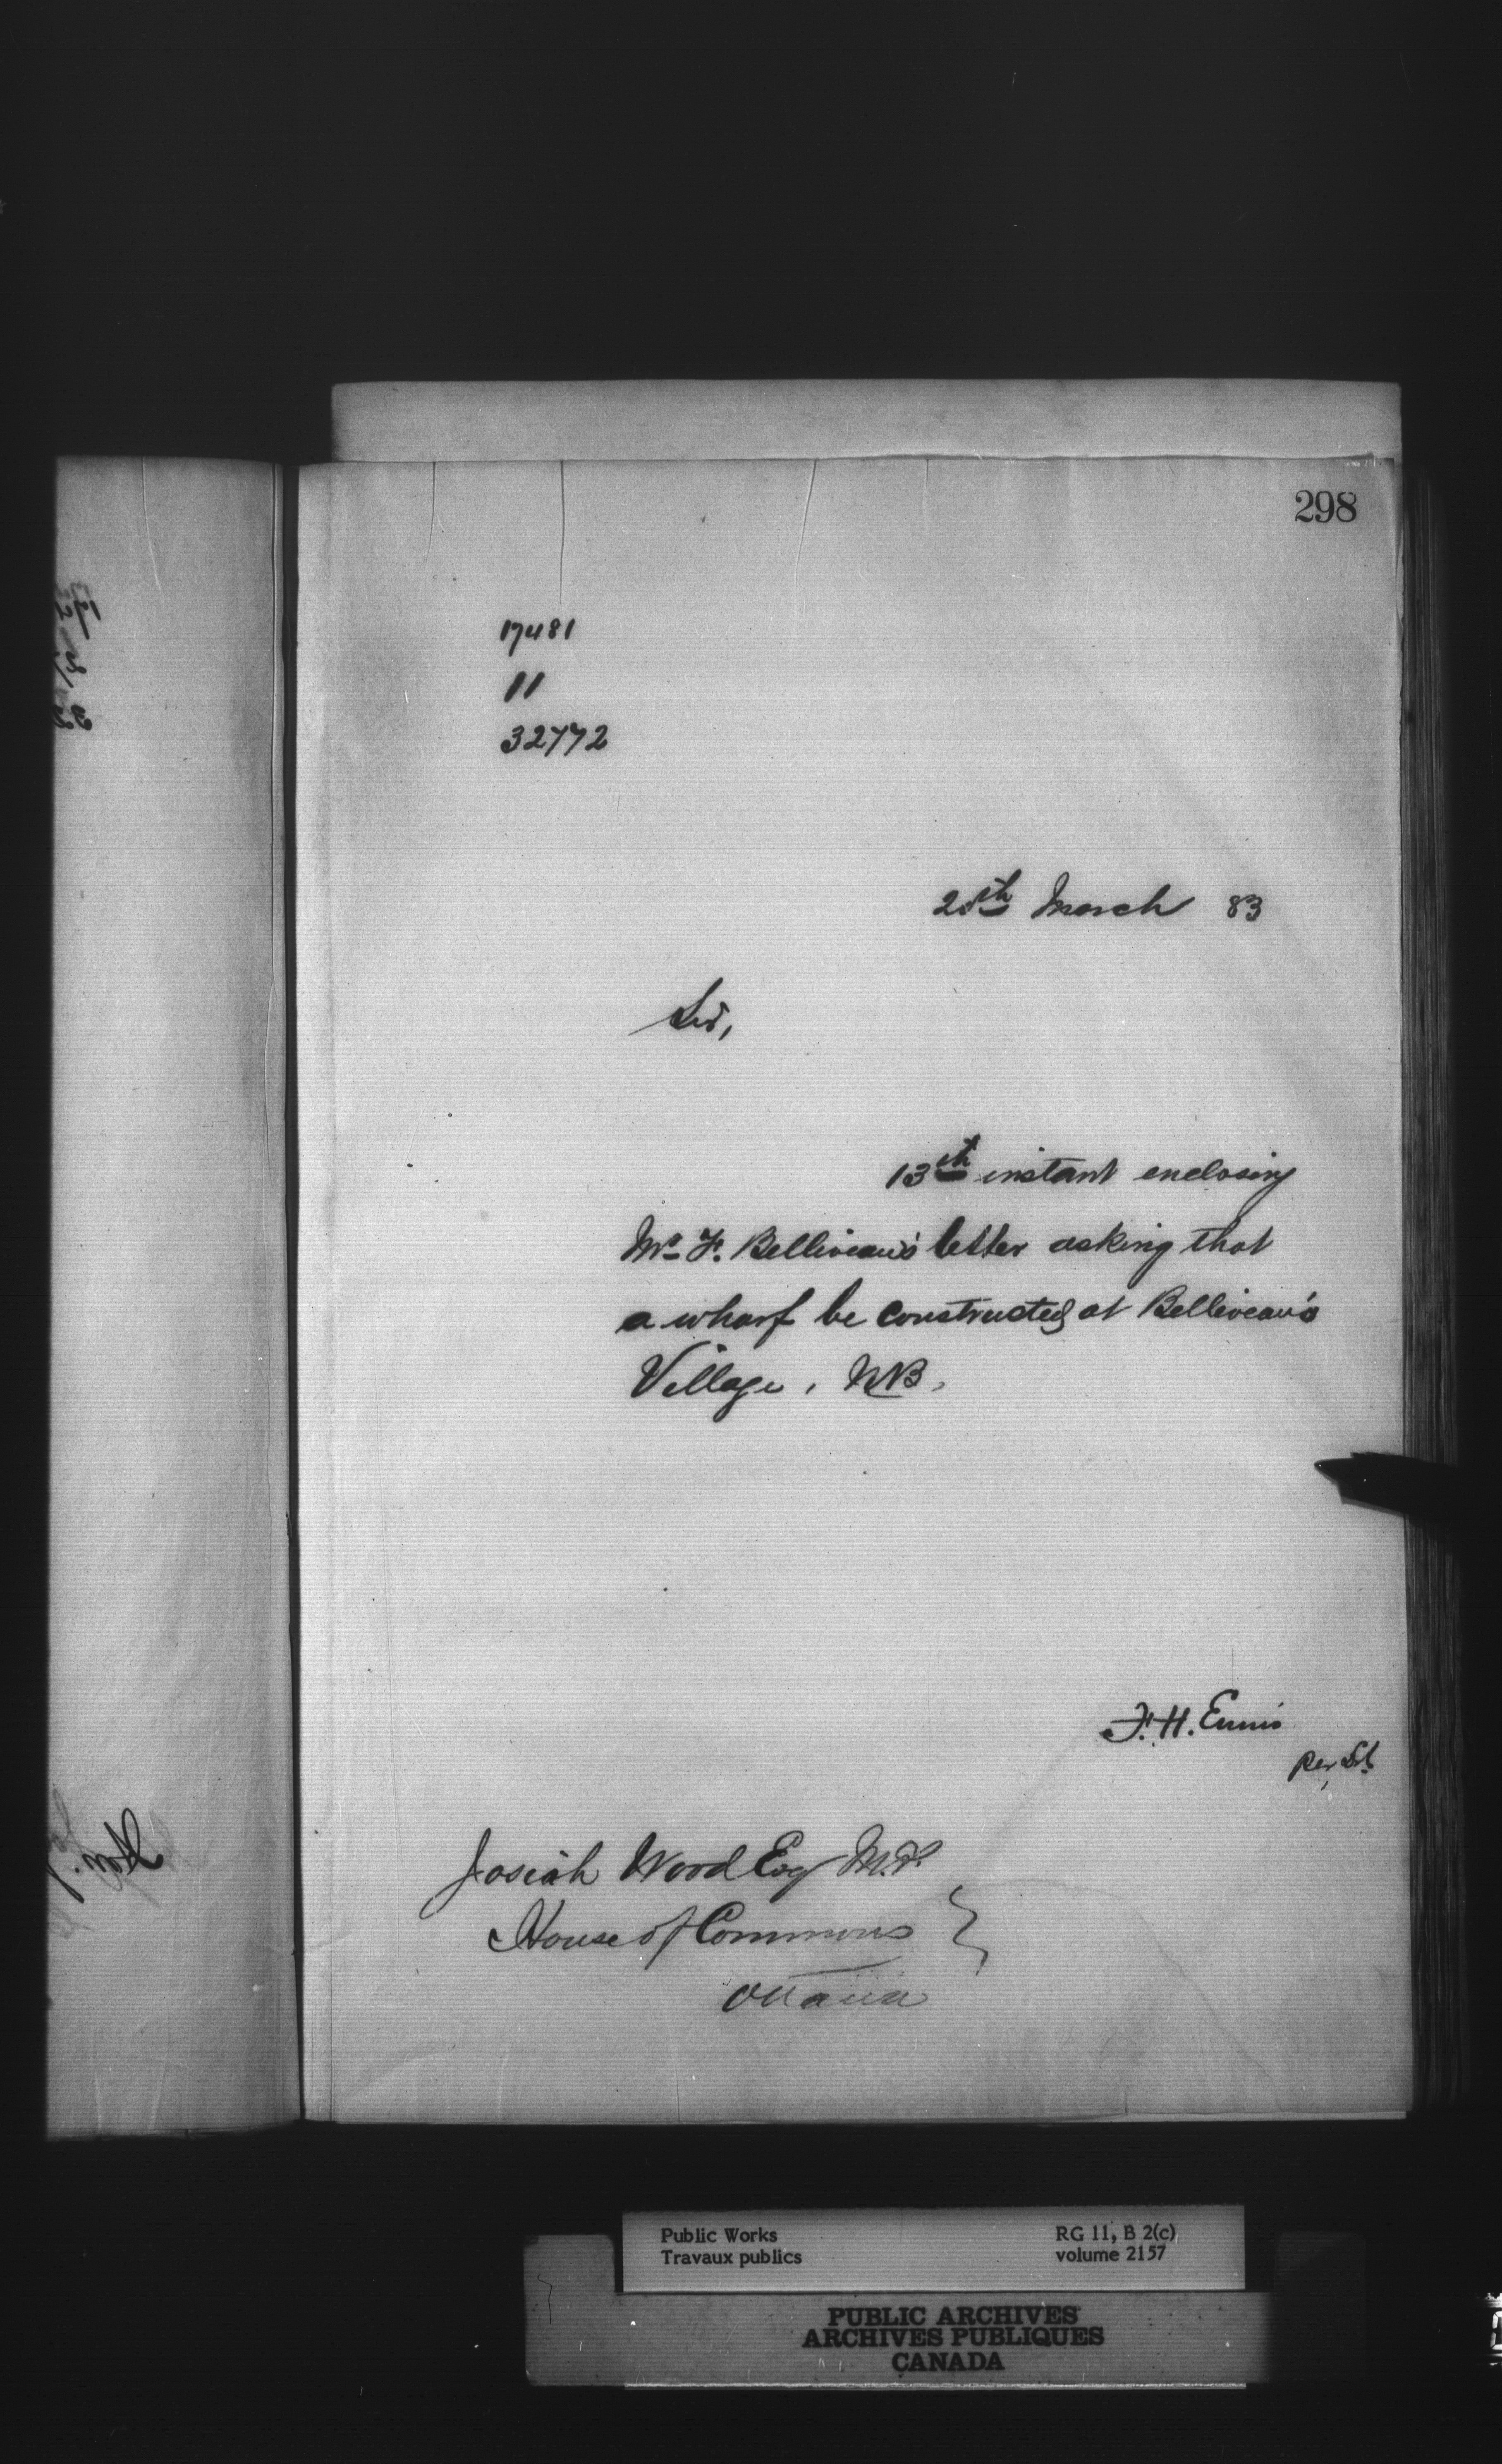 298
17481
11
32772
20th March 83
Sir,
13th instant enclosing
Mr F. Belliveau's letter asking that
a wharf be constructed at Belliveau's
Village, NB.
F. H. Ennis
Josiah Wood Esq M.P.
House of Commons
Ottawa
Public Works
Travaux publics
RG 11, B 2(c)
volume 2157
PUBLIC ARCHIVES
ARCHIVES PUBLIQUES
CANADA